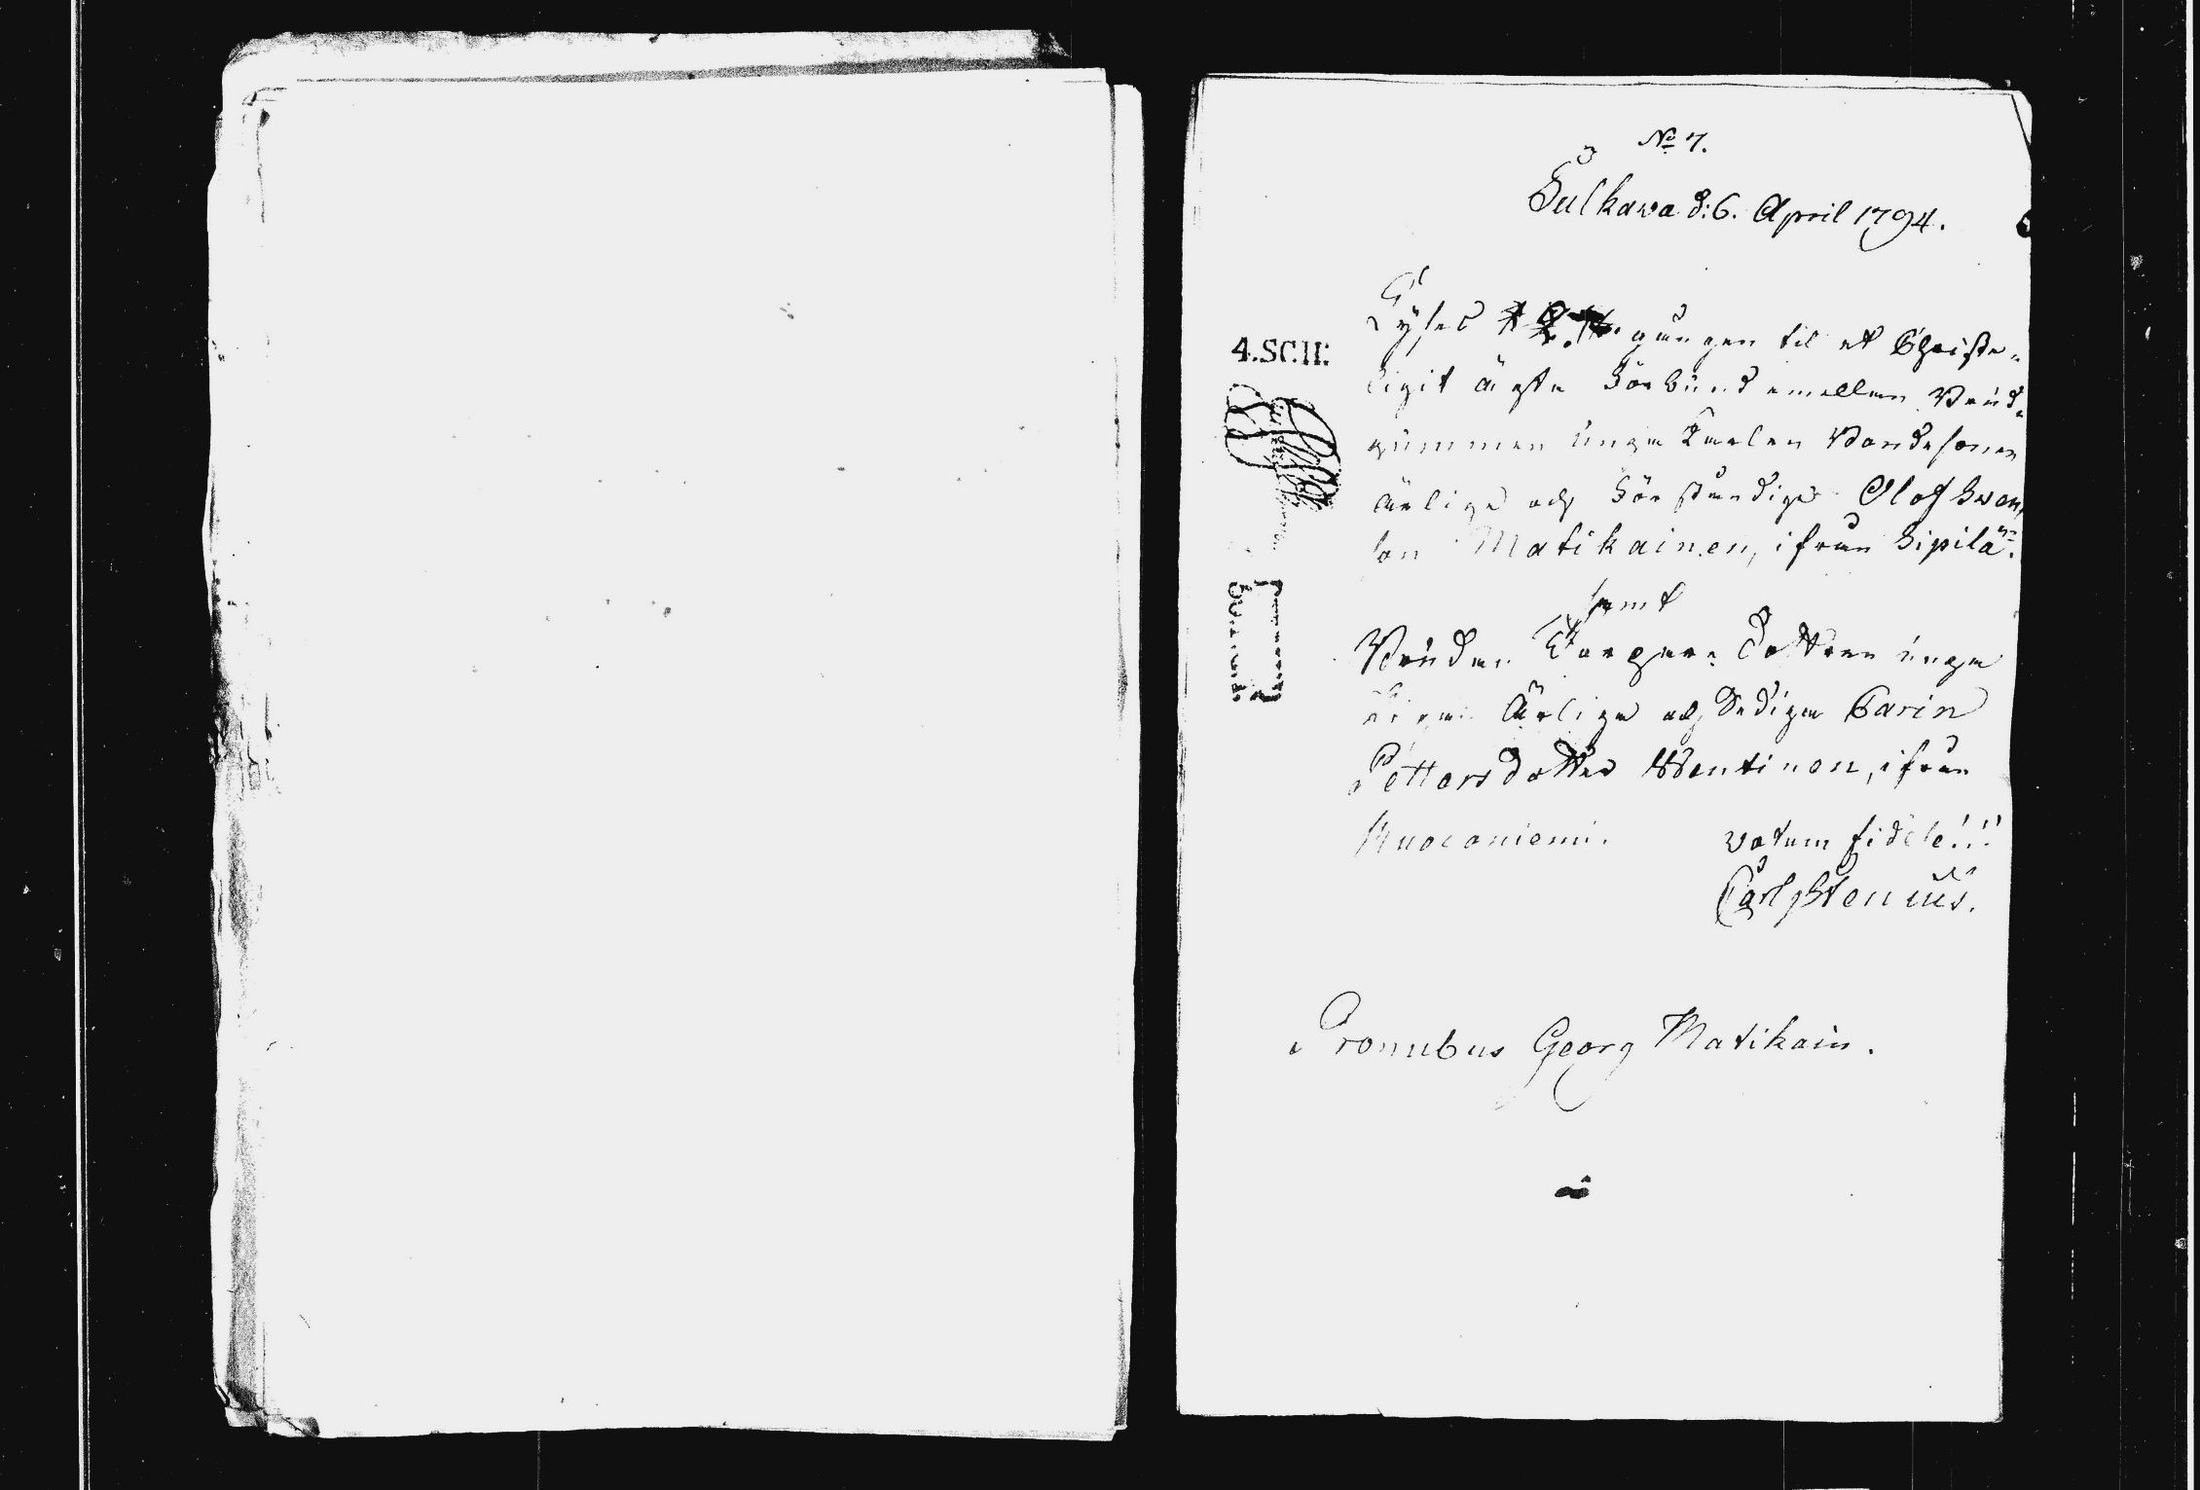 No 7.
Sulkava d: 6. April 1794.
4.SC.II:
Lyses gången til et Christe-
ligit ägta Förbund emellan Brud-
gummen unga Karlen Bondesonen
ärlige och Förståndige Olof Swen,
son Matikainen, ifrån Sipilä.
samt
Bruden dottren unga
ärliga och Sediga Carin
Pettersdotter Wentinen, ifrån
votum fidele!!!
Carl Stenius.
Pronubus Georg Matikain.